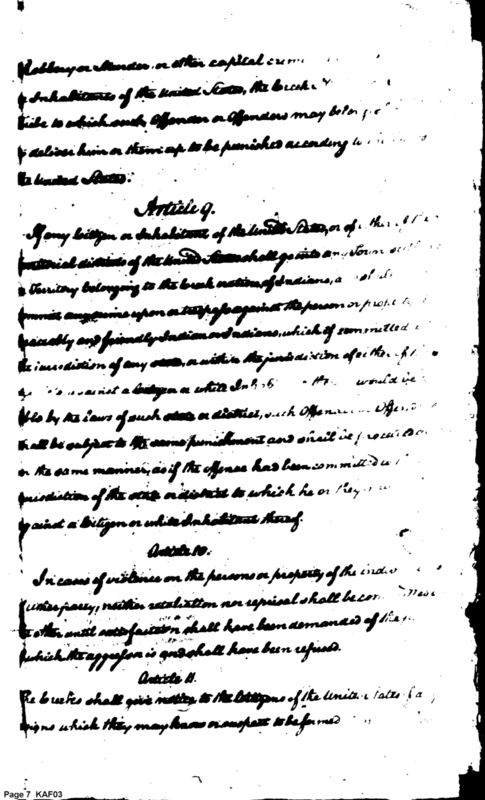 Robbery or Murder, or other capital crime
Inhabitants of the United States, the Creeks
tribe to which such Offender or Offenders may belong
deliver him or them up to be punished according to
the United States.
Article 9.
If any Citizen or Inhabitant of the United States, or of either of the
territorial districts of the United States shall go into any Town
or Territory belonging to the Creek nation of Indians, and shall
commit any crime upon or trespass against the person or property
peaceably and friendly Indian or Indians, which if committed
the jurisdiction of any state, or within the jurisdiction of either of
against a Citizen or white Inhabitant would be
by the laws of such state or district, such Offender or Offenders
shall be subject to the same punishment and shall be proceeded
in the same manner, as if the offence had been committed
jurisdiction of the state or district to which he or they
against a Citizen or white Inhabitant thereof.
Article 10.
In cases of violence on the persons or property of the
either party, neither retaliation nor reprisal shall be
other until satisfaction shall have been demanded of the
which the aggressor is and shall have been refused.
Article 11.
The Creeks shall give notice to the Citizens of the United States of any
designs which they may know or suspect to be formed
Page 7 KAF03